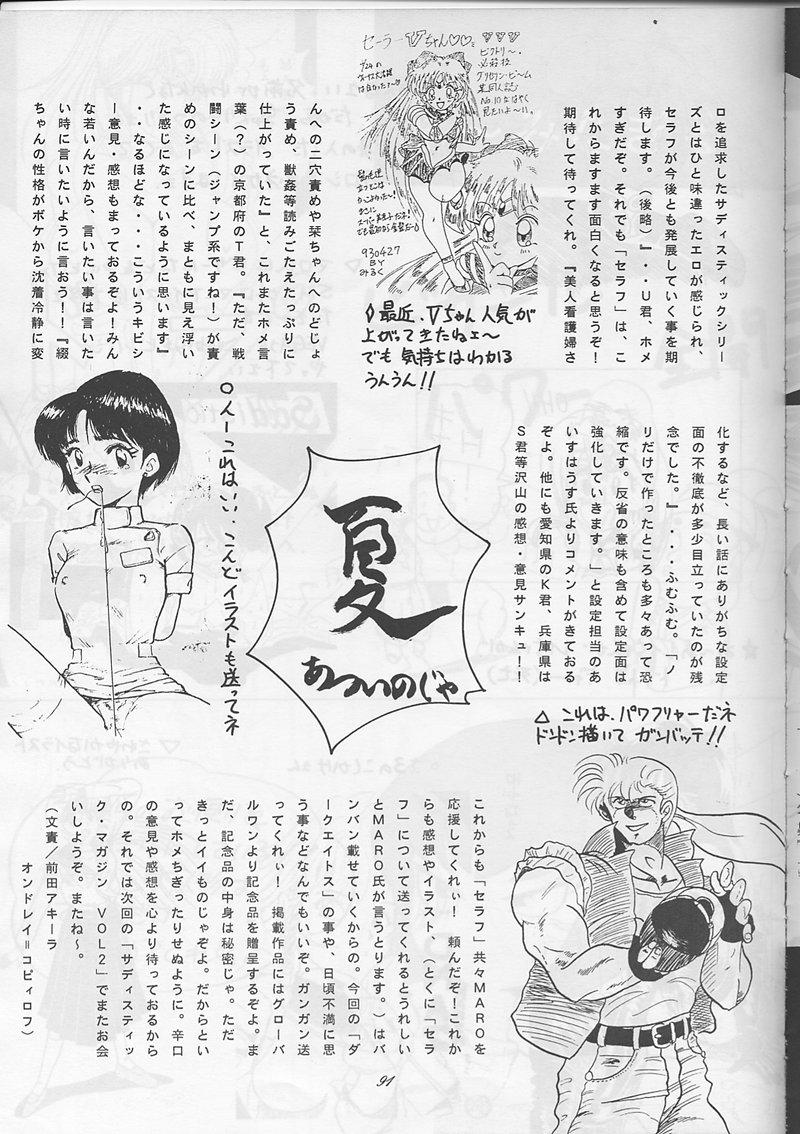 セーラーVちゃん♡♡
ビクトリー。
必殺技
930427
BY
みるく
◊最近、Vちゃん人気が
上がってきたねェ〜
でも気持ちはわかる
うんうん!!
ロを追求したサディスティックシリー
ズとはひと味違ったエロが感じられ、
セラフが今後とも発展していく事を期
待します。(後略)』・・U君、ホメ
すぎだぞ。それでも「セラフ」は、こ
れからますます面白くなると思うぞ!
期待して待ってくれ。『美人看護婦さ
んへの二穴責めや栞ちゃんへのどじょ
う責め、獣姦等読みごたえたっぷりに
仕上がっていた』と、これまたホメ言
葉(?)の京都府のT君。『ただ、戦
闘シーン(ジャンプ系ですね!)が責
めのシーンに比べ、まともに見え浮い
た感じになっているように思います』
・・なるほどな・・・こういうキビシ
ー意見・感想もまっておるぞよ!みん
な若いんだから、言いたい事は言いた
い時に言いたいように言おう!!『綴
ちゃんの性格がボケから沈着冷静に変
化するなど、長い話にありがちな設定
面の不徹底が多少目立っていたのが残
念でした。』・・・ふむふむ。「ノ
リだけで作ったところも多々あって恐
縮です。反省の意味も含めて設定面は
強化していきます。」と設定担当のあ
いすはうす氏よりコメントがきておる
ぞよ。他にも愛知県のK君、兵庫県は
S君等沢山の感想・意見サンキュ!!
○人ーこれはいい、こんどイラストも送ってネ
夏
あついのじゃ
△これは、パワフリャーだネ
ドンドン描いてガンバッテ!!
これからも「セラフ」共々MAROを
応援してくれぃ!頼んだぞ!これか
らも感想やイラスト、(とくに「セラ
フ」について送ってくれるとうれしい
とMARO氏が言うとります。)はバ
ンバン載せていくからの。今回の「ダ
ークエイトス」の事や、日頃不満に思
う事などなんでもいいぞ。ガンガン送
ってくれぃ!掲載作品にはグローバ
ルワンより記念品を贈呈するぞよ。ま
だ、記念品の中身は秘密じゃ。ただ
きっとイイものじゃぞよ。だからとい
ってホメちぎったりせぬように。辛口
の意見や感想を心より待っておるから
の。それでは次回の「サディスティッ
ク・マガジン VOL2」でまたお会
いしようぞ。またね〜。
(文責/前田アキーラ
オンドレイ=コピィロフ)
91